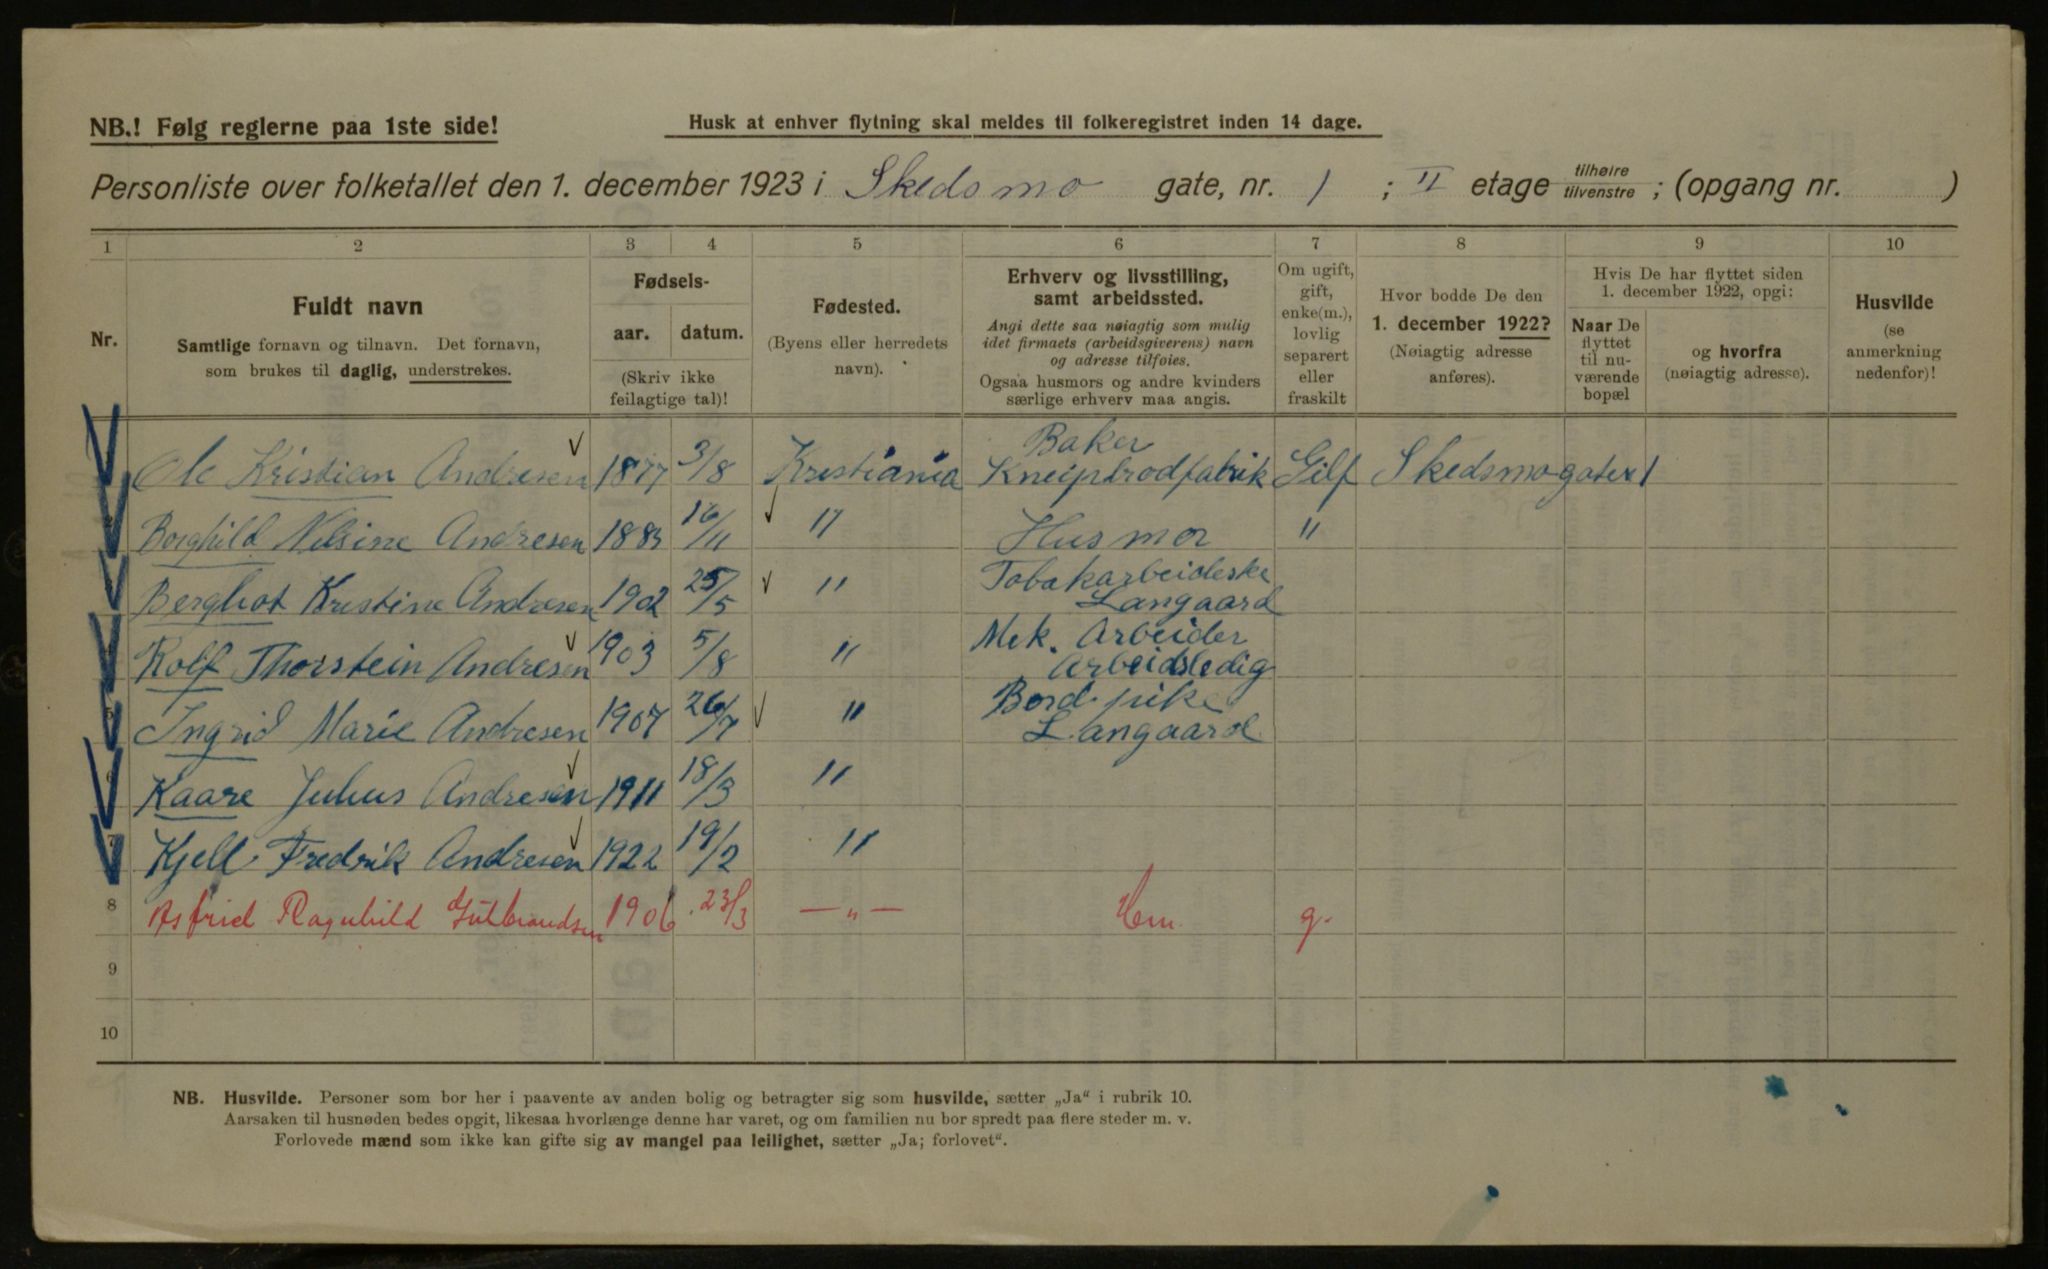 NB.! Følg reglerne paa 1ste side!
Husk at enhver flytning skal meldes til folkeregistret inden 14 dage.
Personliste over folketallet den 1. december 1923 i Skedsmo gate, nr. 1 ; II etage tilhøire tilvenstre ; (opgang nr. )
1 2 3 4 5 6 7 8 9 10
Nr.
Fuldt navn
Samtlige fornavn og tilnavn. Det fornavn,
som brukes til daglig, understrekes.
Fødsels-
aar. datum.
(Skriv ikke
feilagtige tal)!
Fødested.
(Byens eller herredets
navn).
Erhverv og livsstilling,
samt arbeidssted.
Angi dette saa nøiagtig som mulig
idet firmaets (arbeidsgiverens) navn
og adresse tilføies.
Ogsaa husmors og andre kvinders
særlige erhverv maa angis.
Om ugift,
gift,
enke(m.),
lovlig
separert
eller
fraskilt
Hvor bodde De den
1. december 1922?
(Nøiagtig adresse
anføres).
Hvis De har flyttet siden
1. december 1922, opgi:
Naar De
flyttet
til nu-
værende
bopæl
og hvorfra
(nøiagtig adresse).
Husvilde
(se
anmerkning
nedenfor)!
Ole Kristian Andresen 1877 3/8 Kristiania Baker Kneipbrødfabrik Gift Skedsmogaten 1
2 Borghild Nilsine Andresen 1883 16/11 " Husmor "
3 Bergliot Kristine Andresen 1902 25/5 " Tobakarbeideske Langaard
4 Rolf Thorstein Andresen 1903 5/8 " Mek. Arbeider Arbeidsledig
5 Ingrid Marie Andresen 1907 26/7 " Bord pike Langaard
6 Kaare Julius Andresen 1911 18/3 "
7 Kjell Fredrik Andresen 1922 19/2 "
8 Astrid Ragnhild Gulbrandsen 1906 23/3 — " — Hm. g.
9
10
NB. Husvilde. Personer som bor her i paavente av anden bolig og betragter sig som husvilde, sætter „Ja“ i rubrik 10.
Aarsaken til husnøden bedes opgit, likesaa hvorlænge denne har varet, og om familien nu bor spredt paa flere steder m. v.
Forlovede mænd som ikke kan gifte sig av mangel paa leilighet, sætter „Ja; forlovet“.